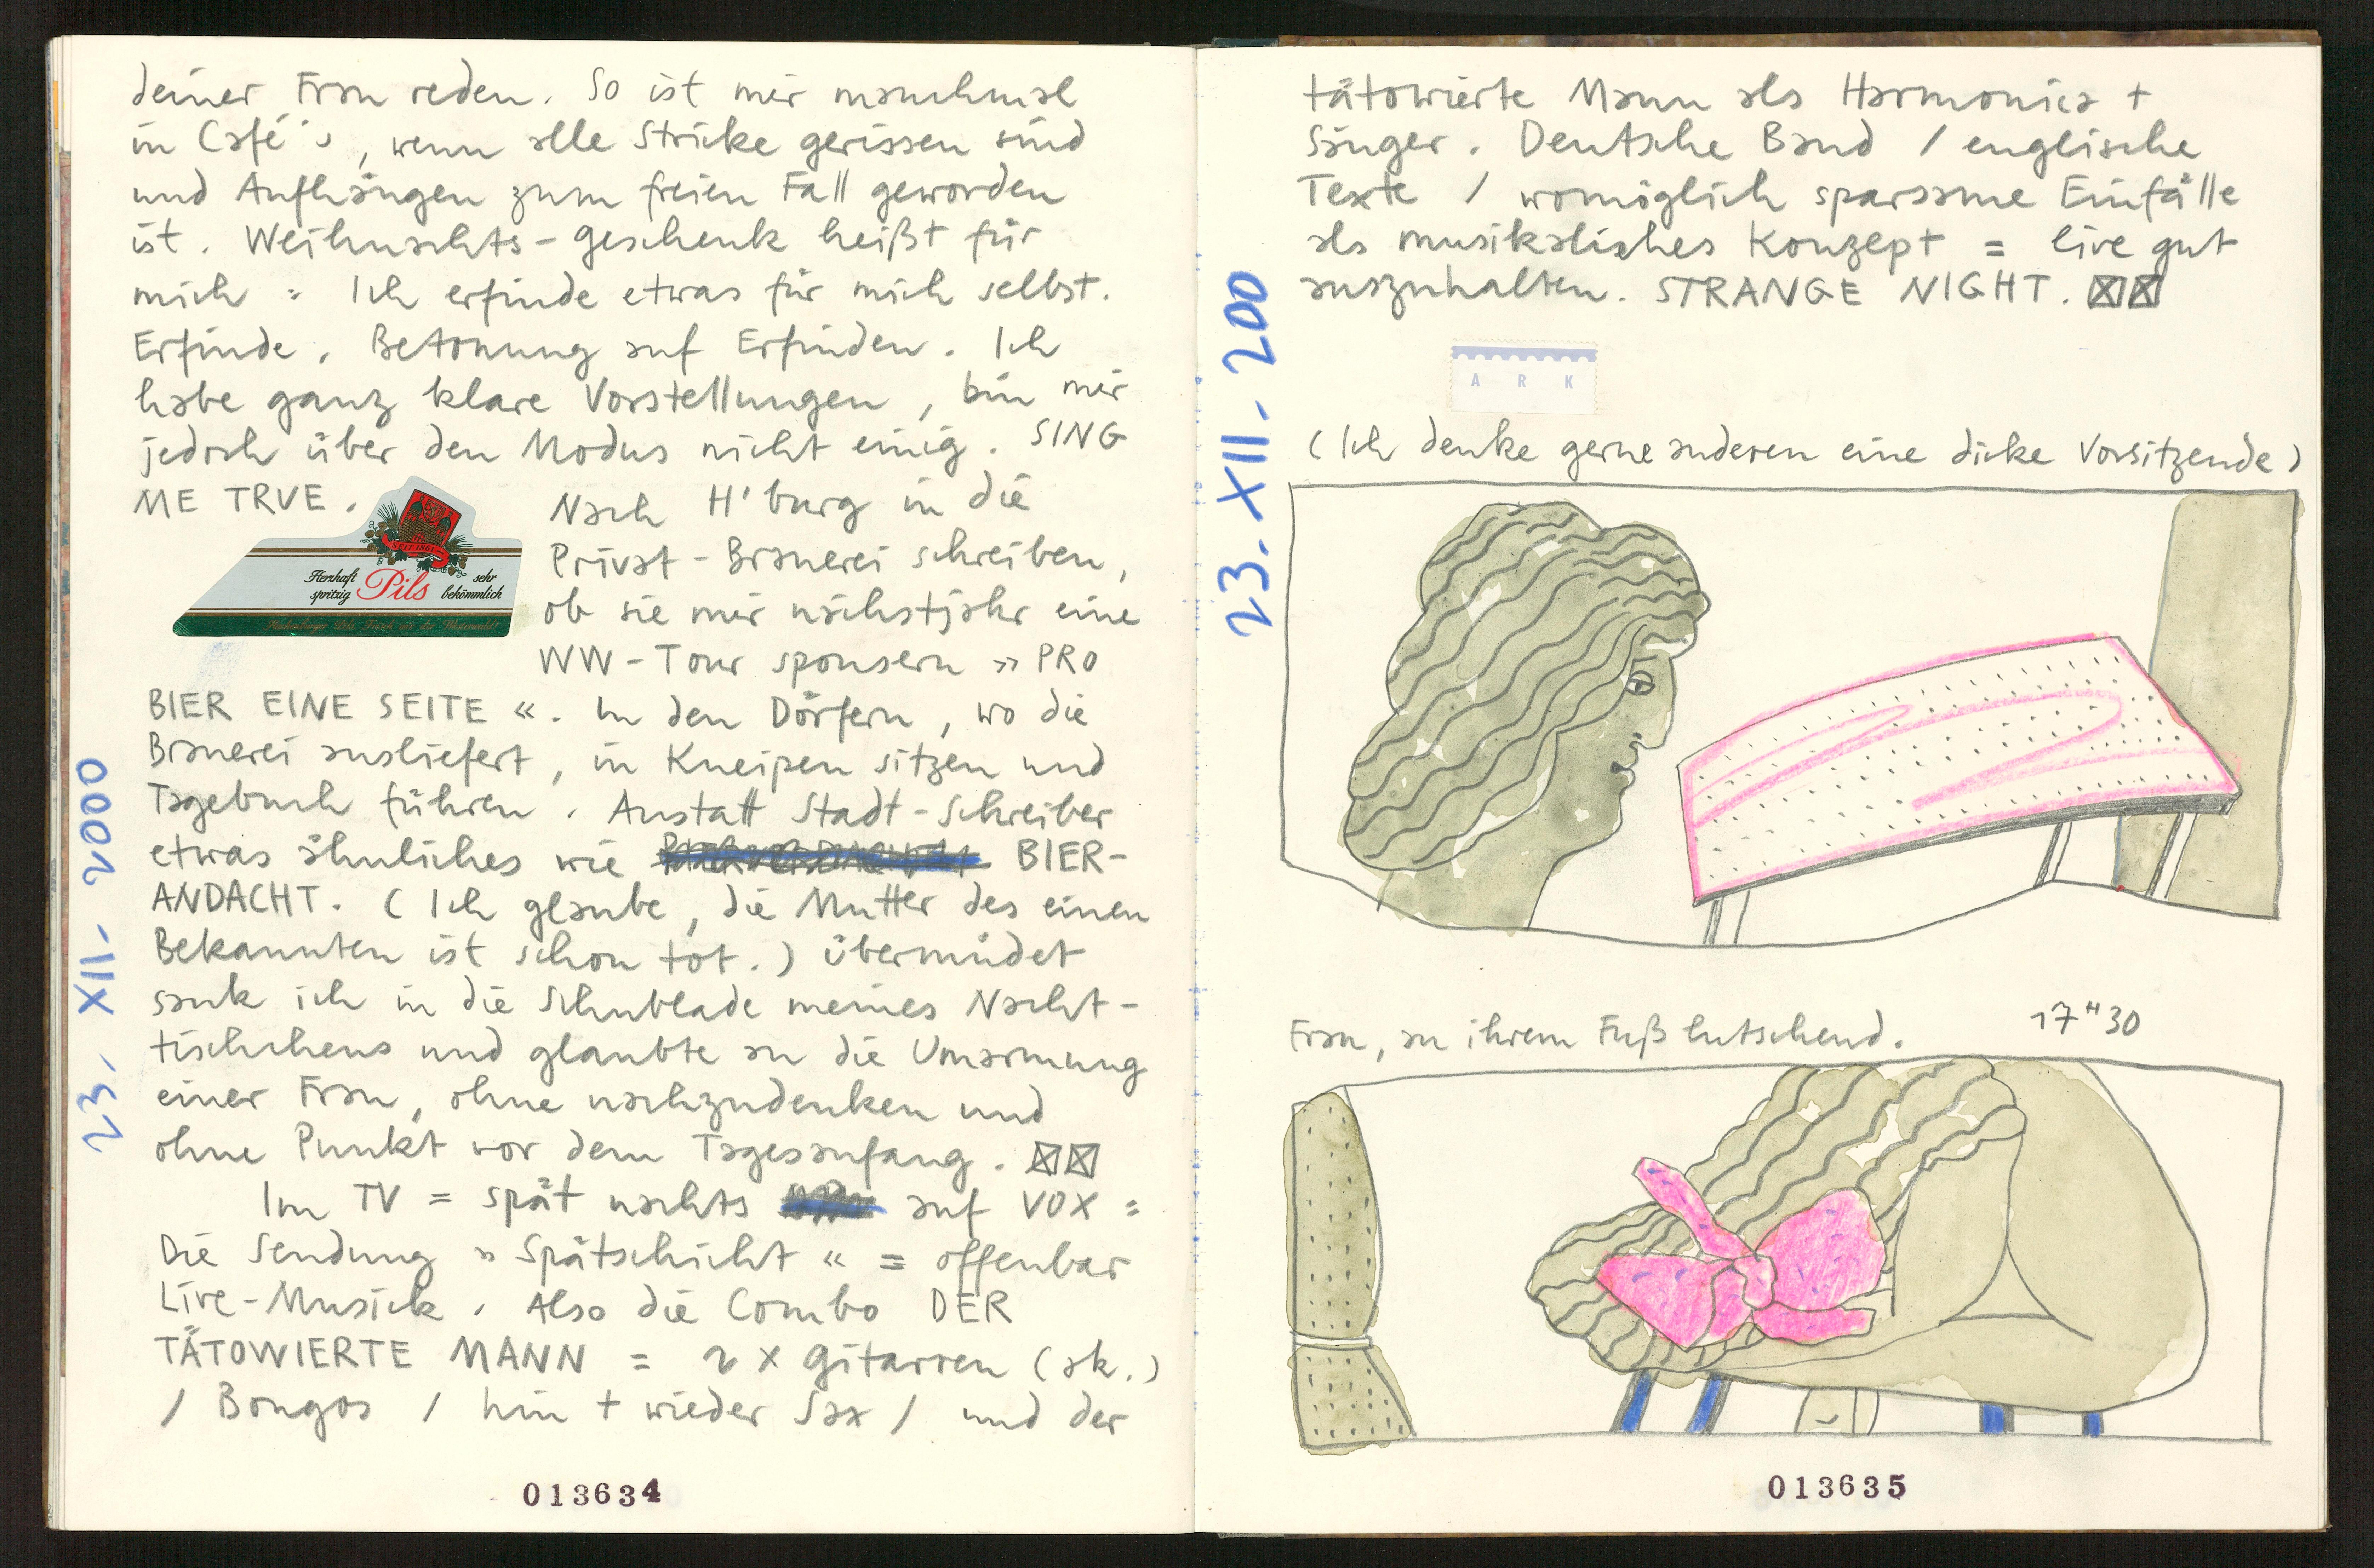 deiner Frau reden. So ist mir manchmal
in Café's, wenn alle Stricke gerissen sind
und Aufhängen zum freien Fall geworden
ist. Weihnachts-geschenk heißt für
mich = Ich erfinde etwas für mich selbst.
Erfinde. Betonung auf Erfinden. Ich
habe ganz klare Vorstellungen, bin mir
jedoch über den Modus nicht einig. SING
ME TRVE.
SEIT 1861
Herzhaft spritzig Pils sehr bekömmlich
Hachenburger Pils. Frisch aus dem Westerwald!
Nach H'burg in die
Privat-Brauerei schreiben,
ob sie mir nächstjahr eine
WW-Tour sponsern » PRO
BIER EINE SEITE «. In den Dörfern, wo die
Brauerei ausliefert, in Kneipen sitzen und
Tagebuch führen. Anstatt Stadt-Schreiber
etwas ähnliches wie BIER-
ANDACHT. (Ich glaube, die Mutter des einen
Bekannten ist schon tot.) übermüdet
sank ich in die Schublade meines Nacht-
tischchens und glaubte an die Umarmung
einer Frau, ohne nachzudenken und
ohne Punkt vor dem Tagesanfang. ☒☒
Im TV = spät nachts auf VOX =
Die Sendung » Spätschicht « = offenbar
Live-Musick. Also die Combo DER
TÄTOWIERTE MANN = 2 X gitarren (ak.)
/ Bongos / hin + wieder Sax / und der
23. XII. 2000
013634
tätowierte Mann als Harmonica +
Sänger. Deutsche Band / englische
Texte / womöglich sparsame Einfälle
als musikalisches Konzept = live gut
auszuhalten. STRANGE NIGHT. ☒☒
23. XII. 200
A R K
(Ich denke gerne anderen eine dicke Vorsitzende)
Frau, an ihrem Fuß lutschend. 17H30
013635